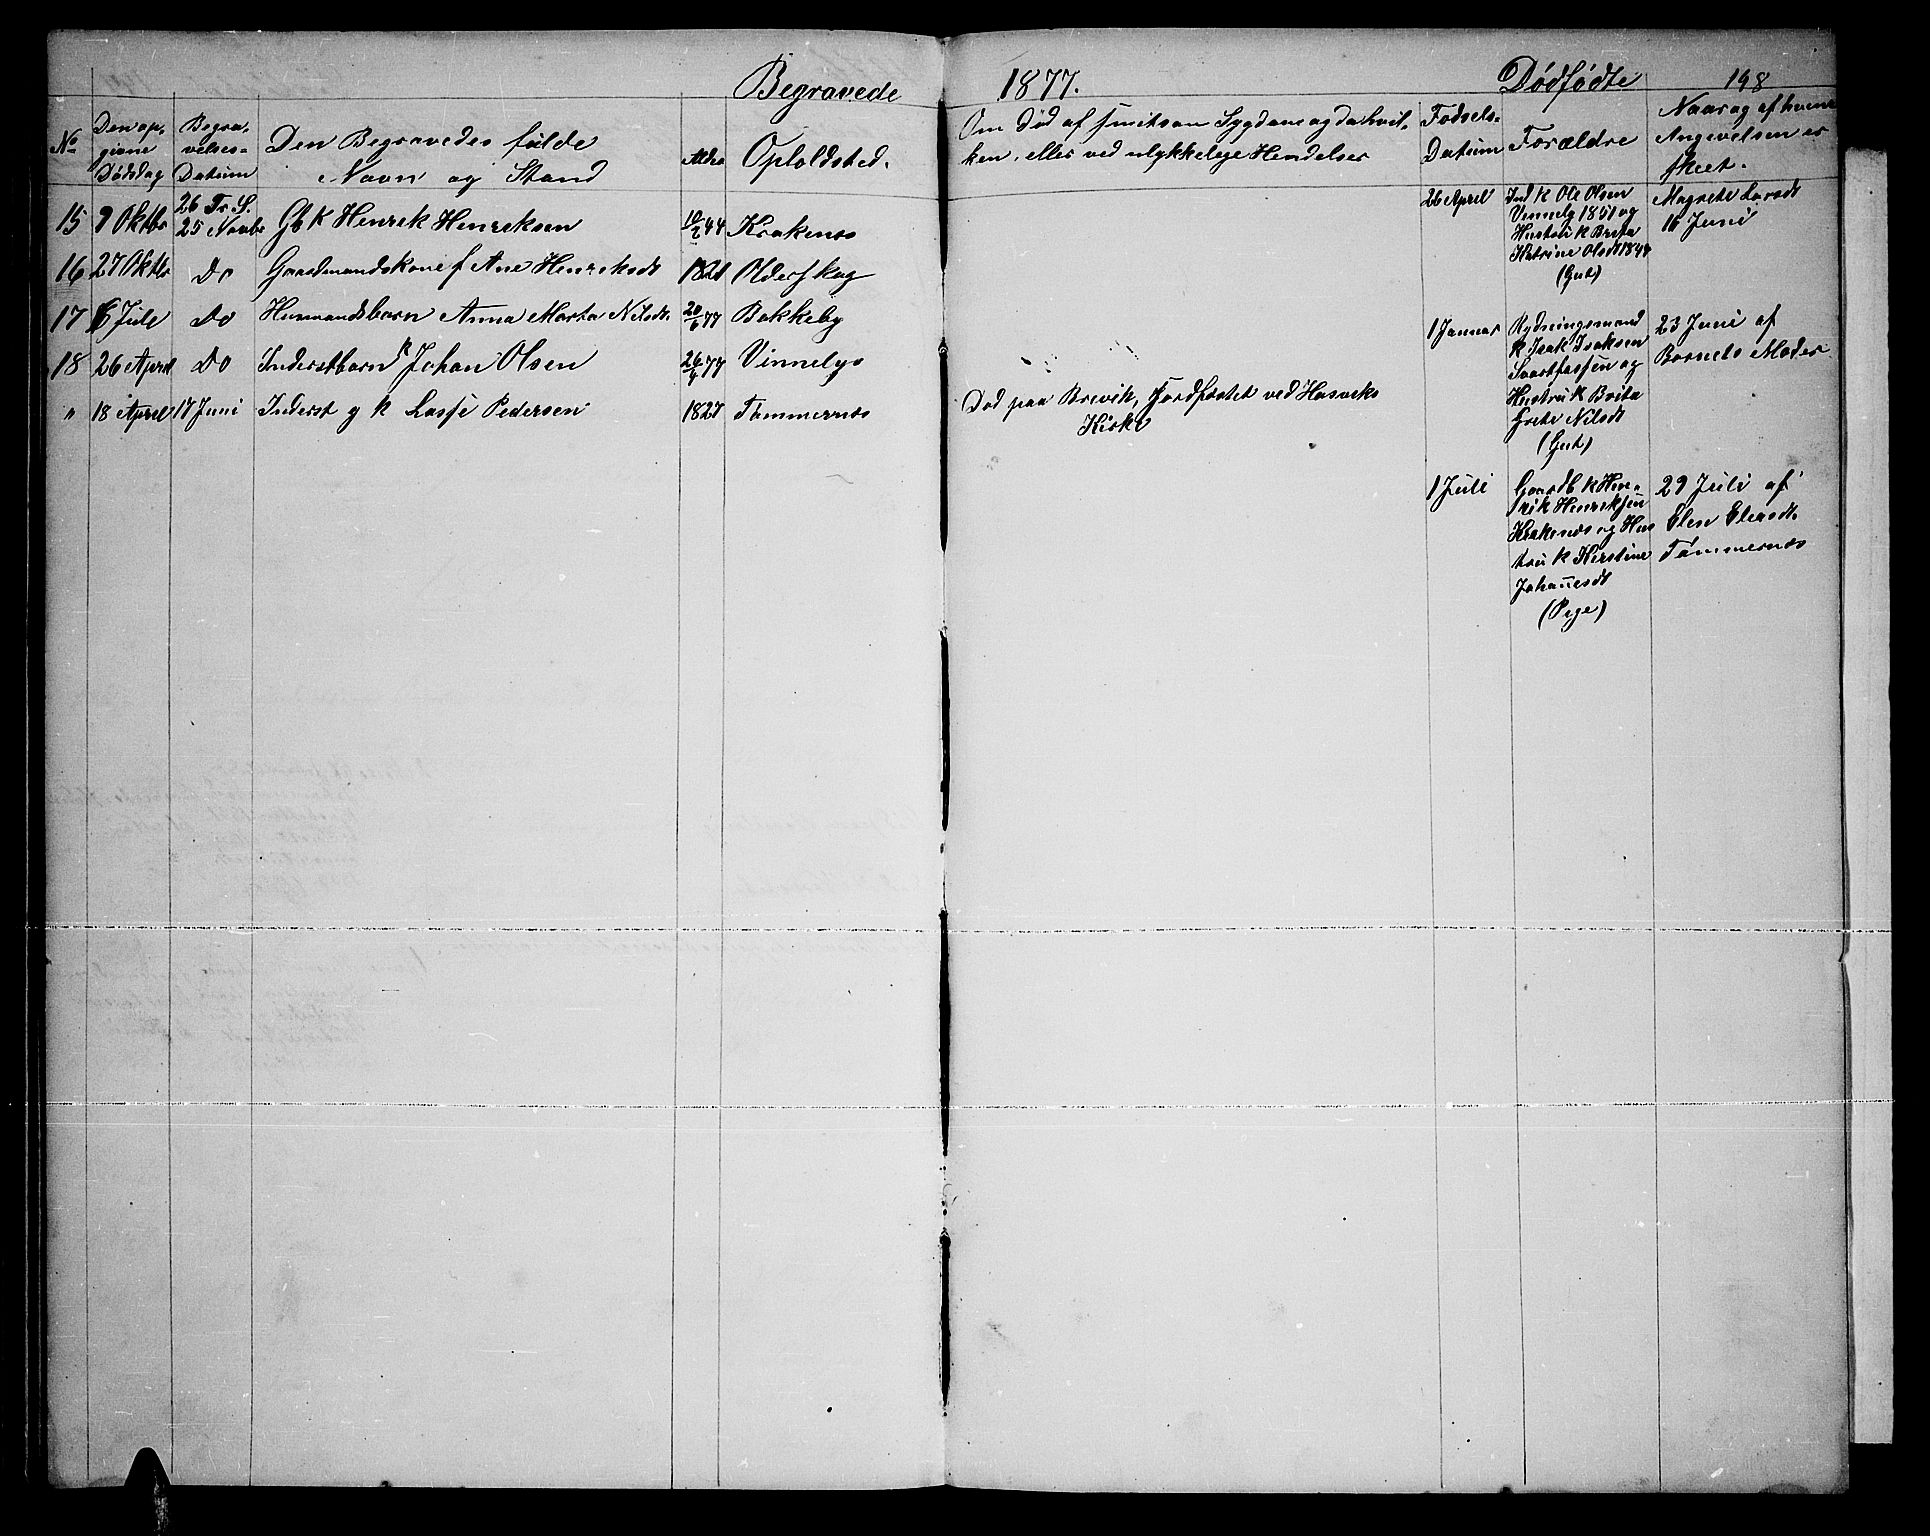 Begravede 1877. Dødfødte 198
No Den op- Begra- Den Begravedes fulde Alder Opholdsted. Om Død af smitsom Sygdom og da hvil- Fødsels- Forældre Naar og af hvem
givne velses- Navn og Stand ken, eller ved ulykkelige Hendelser Datum Angivelsen er
Dødsdag Datum skeet.
26 Tr. S.
15 9 Oktbr 25 Novbr Gbk Henrik Henriksen 10/2 44 Krakenes
16 27 Oktbr Do Gaardmandskone f Ane Henriksdt 1821 Olderskog
17 6 Juli Do Husmandsbarn Anna Marta Nilsdt. 20/6 77 Bakkeby
18 26 April Do Inderstbarn k Johan Olsen 26/4 77 Vinnelys
" 18 April 17 Juni Inderst g k Lasse Pedersen 1827 Tømmernes Død paa Brevik, Jordfæstet ved Hasviks
Kirke
26 April Ind k Ole Olsen Magrete Larsdt
Vinnelys 1851 og 16 Juni
Hustru k Brita
Katrine Olsdt 1844
(Gut)
1 Januar Rydningsmand 23 Juni af
k Isak Isaksen Barnets Moder
Svartfossen og
Hustru k Brita
Grete Nilsdt
(Gut)
1 Juli Gaardb k Hen- 29 Juli af
rik Henriksen Elen Elersdt.
Krakenes og Hus Tømmernes
tru k Kirstine
Johannesdt
(Pige)